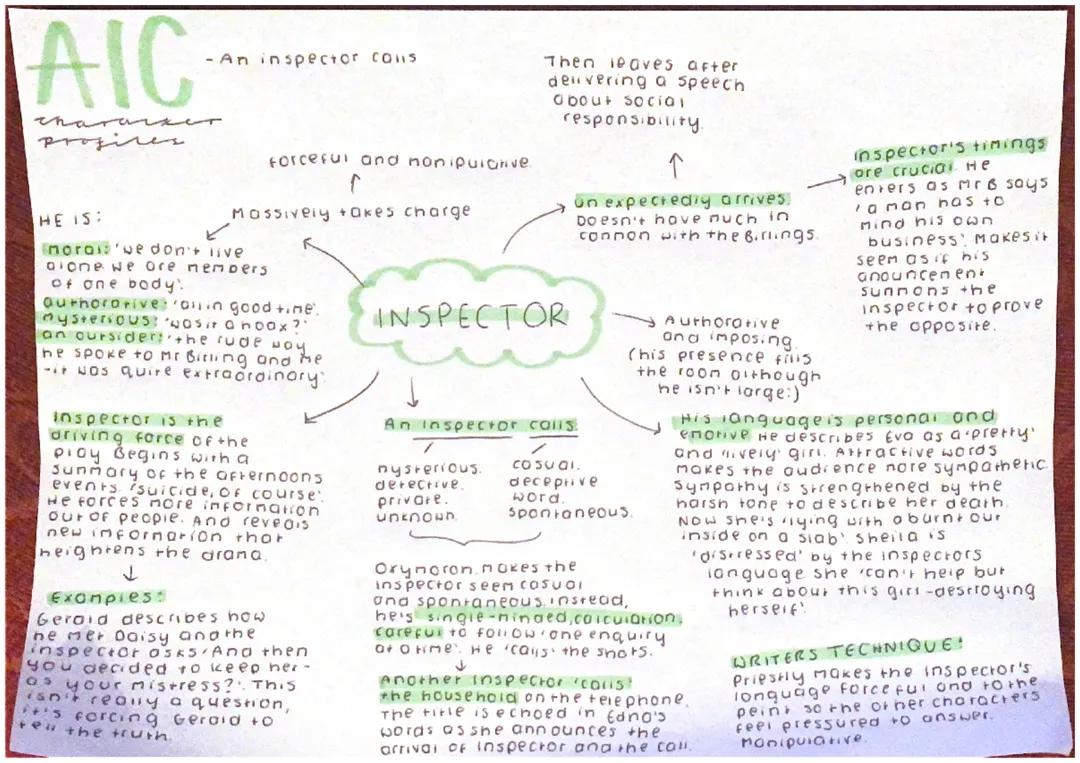 AIC
- An inspector calls
character
profiles
Then leaves after
delivering a speech
about social
responsibility.
forceful and manipulative
Massively takes charge
HE IS:
moral: 'we don't live
alone we are members
of one body'.
authorative: 'all in good time'.
mysterious: 'was it a hoax?'
an outsider: 'the rude way
he spoke to Mr Birling and me
- it was quite extraordinary'.
unexpectedly arrives.
Doesn't have much in
common with the Birlings.
inspector's timings
are crucial. He
enters as Mr B says
'a man has to
mind his own
business'. Makes it
seem as if his
anouncement
summons the
inspector to prove
the opposite.
INSPECTOR
Authorative
and imposing.
(his presence fills
the room although
he isn't large:)
Inspector is the
driving force of the
play Begins with a
summary of the afternoons
events. 'Suicide, of course'.
He forces more information
out of people. And reveals
new information that
heightens the drama.
Examples:
Gerald describes how
he met Daisy and the
inspector asks 'And then
you decided to keep her -
as your mistress?'. This
isn't really a question,
it's forcing Gerald to
tell the truth.
An inspector calls.
mysterious.
detective.
private.
unknown.
casual.
deceptive
word.
spontaneous.
Oxymoron. makes the
inspector seem casual
and spontaneous. instead,
he's single-minded, calculation,
careful to follow 'one enquiry
at a time'. He 'calls' the shots.
Another inspector 'calls'
the household on the telephone.
The title is echoed in Edna's
words as she announces the
arrival of inspector and the call.
His language is personal and
emotive He describes Eva as a 'pretty'
and 'lively' girl. Attractive words
makes the audience more sympathetic.
Sympathy is strengthened by the
harsh tone to describe her death.
Now she's 'lying with a burnt out
inside on a slab' Sheila is
'distressed' by the inspectors
language she 'can't help but
think about this girl - destroying
herself'.
WRITERS TECHNIQUE:
Priestly makes the inspector's
language forceful and to the
point so the other characters
feel pressured to answer.
Manipulative.